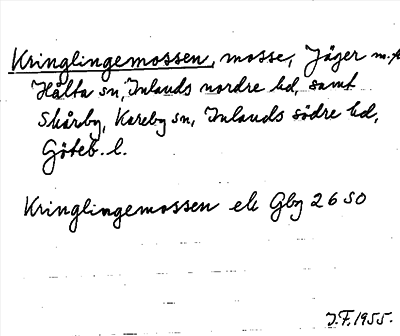 Kringlingemossen, mosse, Jäger m.fl.
Hålta sn, Inlands nordre hd, samt
Skårby, Kareby sn, Inlands södre hd,
Göteb. l.
Kringlingemossen ek Gbg 26 SO
J.F. 1955.